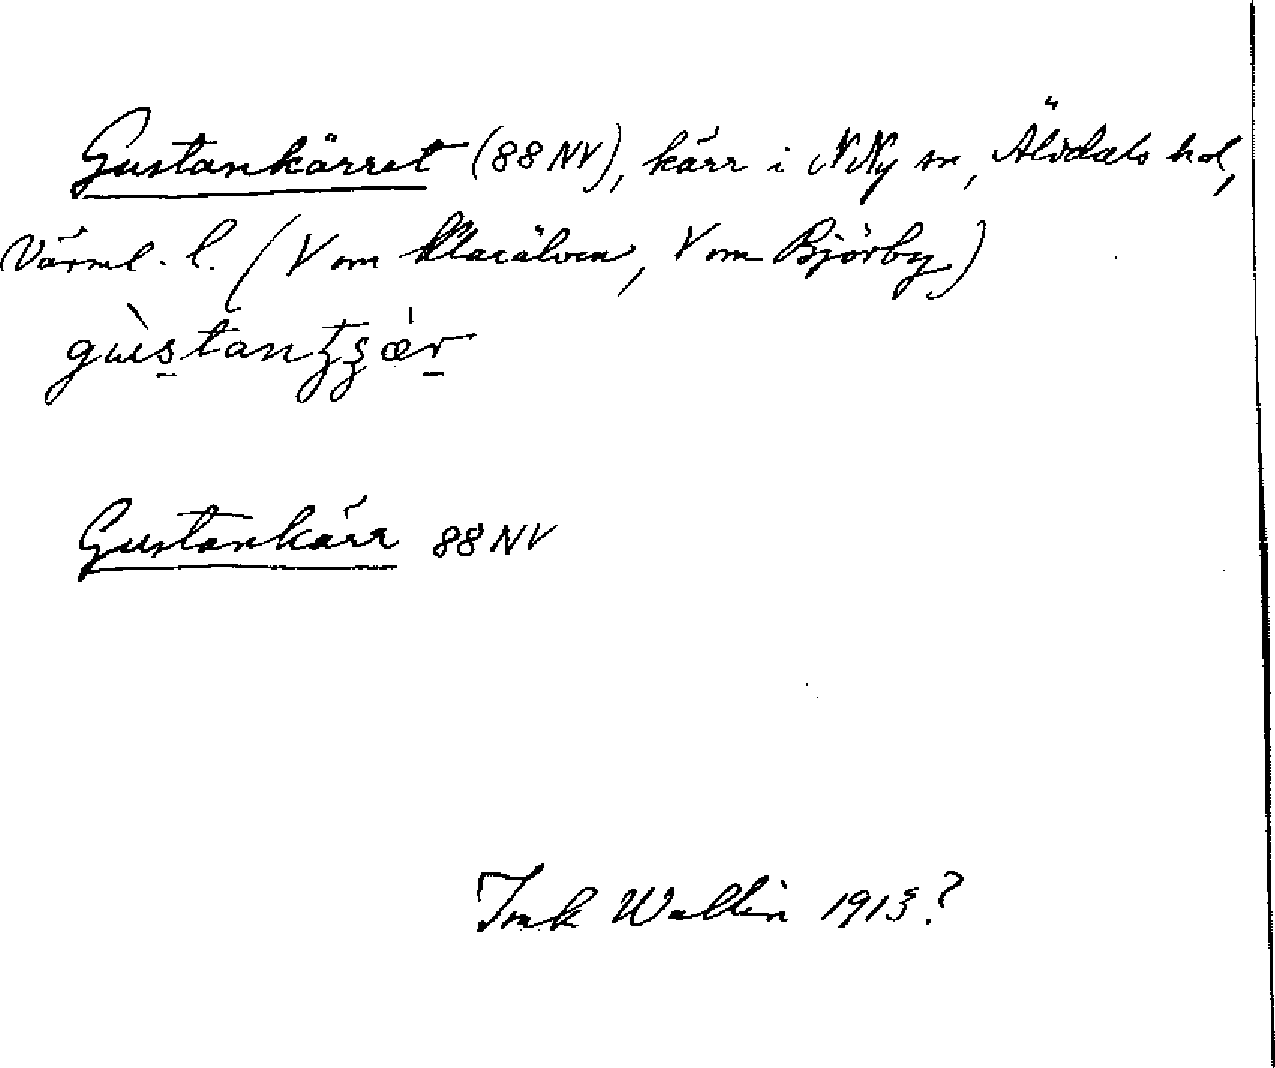 Gustankärret (88 NV), kärr i N Ny sn, Älvdals hd,
Värml. l. (V om Klarälven, V om Björby)
Gustankärr 88 NV
Wallin 1913?